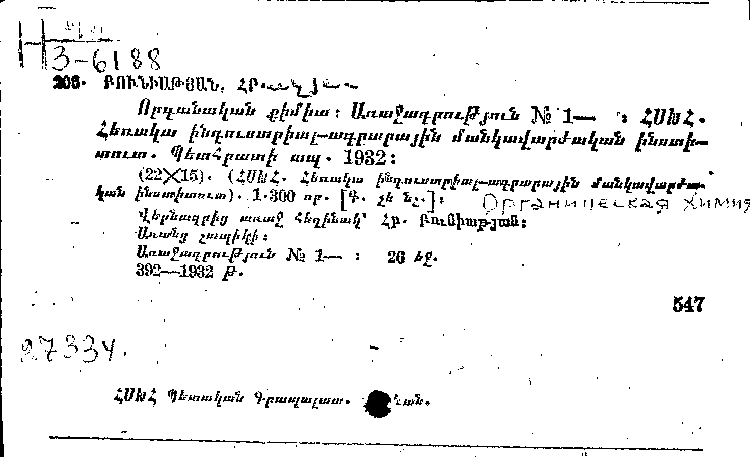 H
3-6188
206. ԲՈՒՆԻԱԹՅԱՆ, ՀՐ.
Որգանական քիմիա: Առաջադրություն № 1— : ՀՍԽՀ.
Հեռակա ինդուստրիալ-ագրարային մանկավարժական ինստի-
տուտ. Պետհրատի տպ. 1932:
(22×15). (ՀՍԽՀ. Հեռակա ինդուստրիալ-ագրարային մանկավարժա-
կան ինստիտուտ). 1.300 որ. [Գ. չե նշ.]: Органическая химия
Վերնագրից առաջ հեղինակ՝ Հր. Բունիաթյան:
Առանց շապիկի:
Առաջադրություն № 1— : 26 էջ.
392—1932 թ.
547
27334.
ՀՍԽՀ Պետական Գրապալատ.